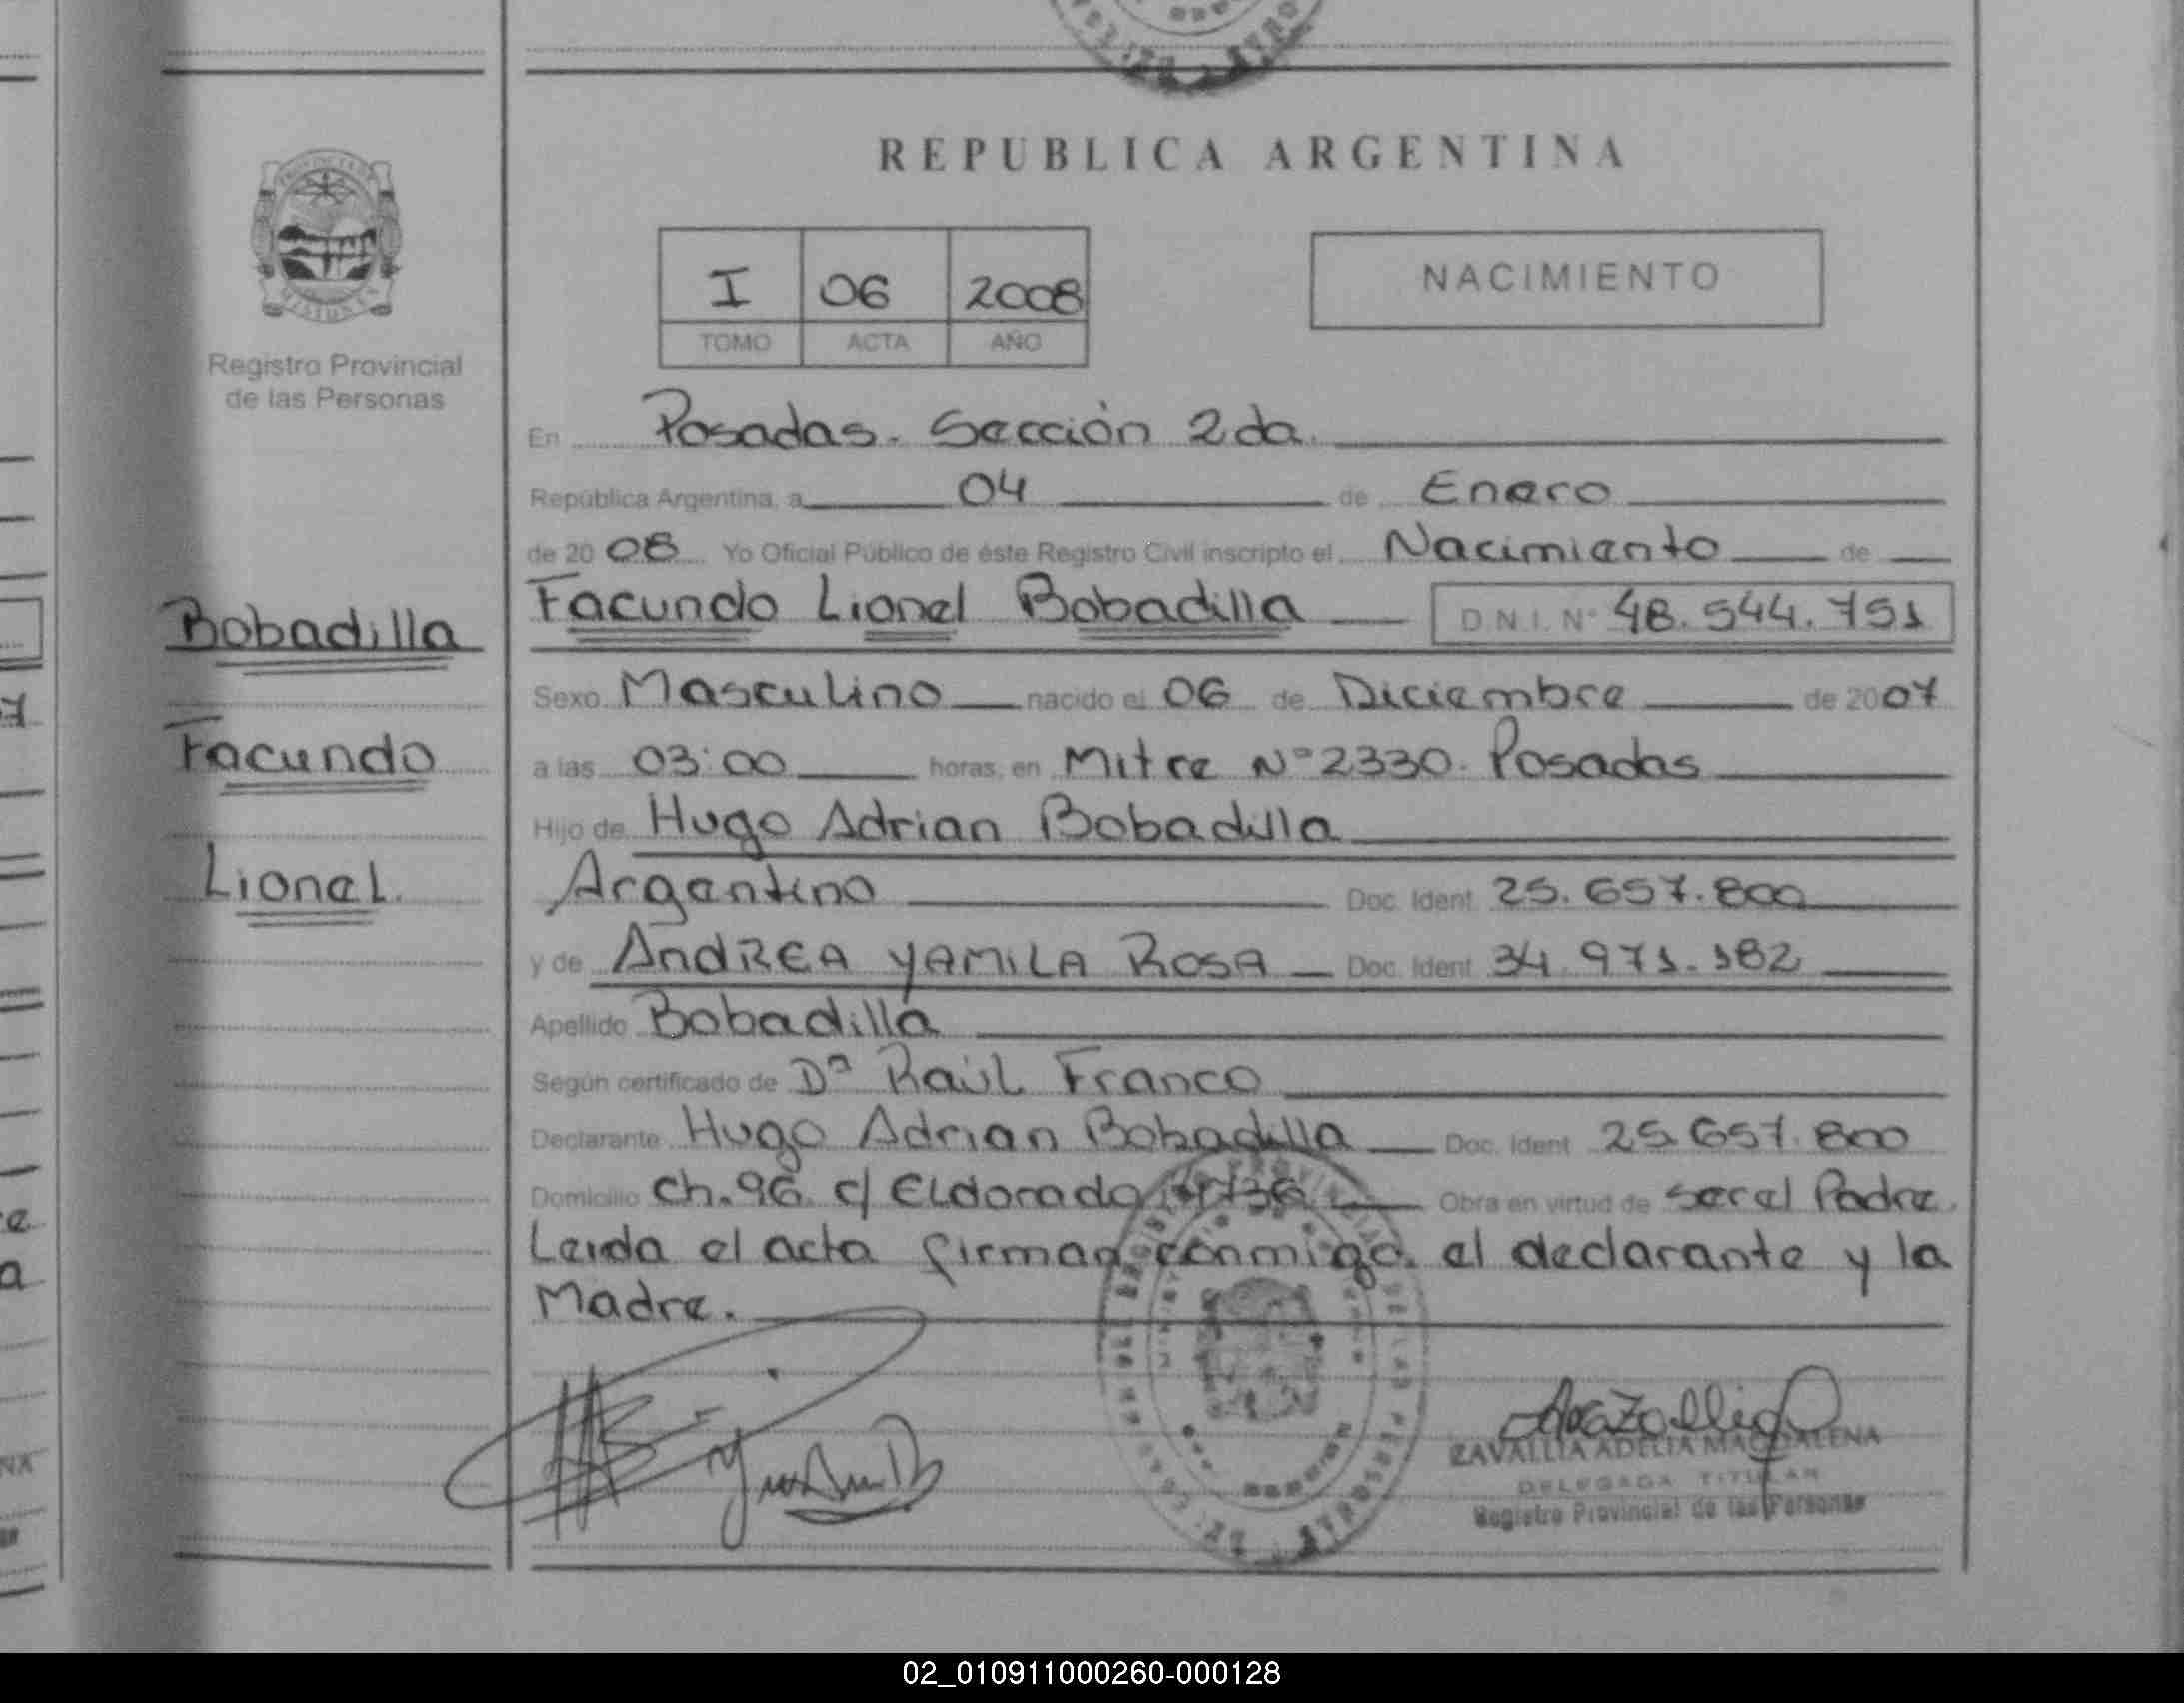 REPUBLICA ARGENTINA
I 06 2008
TOMO ACTA AÑO
NACIMIENTO
Registro Provincial
de las Personas
En Posadas. Sección 2da.
República Argentina, a 04 de Enero
de 20 08 Yo Oficial Público de éste Registro Civil inscripto el Nacimiento de
Facundo Lionel Bobadilla D.N.I. Nº 48.544.751
Bobadilla
Sexo Masculino nacido el 06 de Diciembre de 2007
Facundo
a las 03:00 horas, en Mitre Nº 2330. Posadas
Hijo de Hugo Adrian Bobadilla
Lionel.
Argentino Doc. Ident. 25.657.800
y de AndREA YAMiLA ROSA Doc. Ident. 34.971.182
Apellido Bobadilla
Según certificado de Dº Raúl Franco
Declarante Hugo Adrian Bobadilla Doc. Ident. 25.657.800
Domicilio Ch. 96. c/ ELdorado Obra en virtud de ser el Padre.
Leida el acta firman conmigo. el declarante y la
Madre.
ZAVALLIA ADELIA MAGDALENA
DELEGADA TITULAR
Registro Provincial de las Personas
02_010911000260-000128